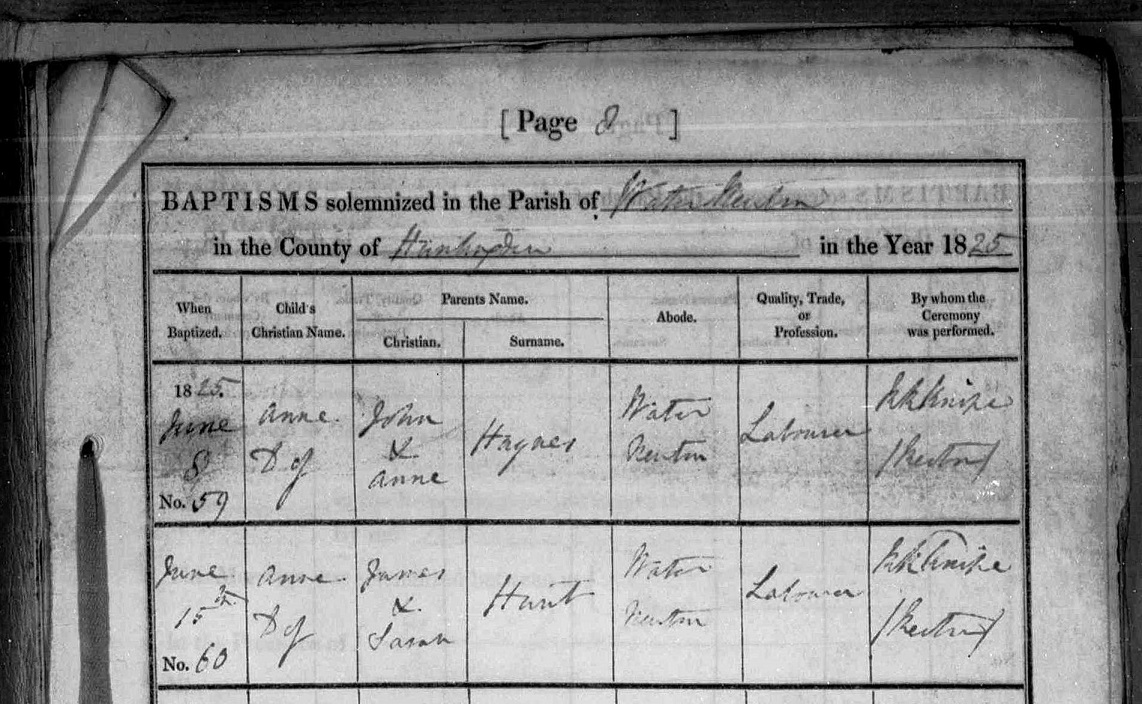 [ Page 8 ]
BAPTISMS solemnized in the Parish of Water Newton
in the County of Huntingdon in the Year 1825
When Baptized. Child's Christian Name. Parents Name. Abode. Quality, Trade, or Profession. By whom the Ceremony was performed.
Christian. Surname.
1825. June 8 No. 59 Anne D of John & Anne Haynes Water Newton Labourer Knipe (Rector)
June 15th No. 60 Anne D of James & Sarah Hunt Water Newton Labourer Knipe (Rector)